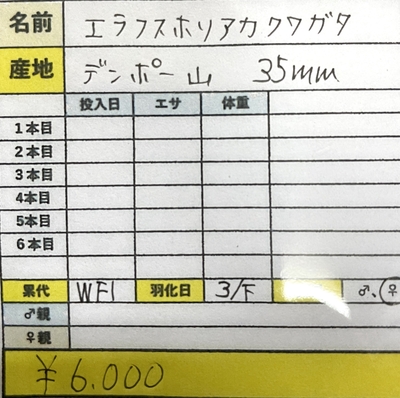 名前 エラフスホソアカクワガタ
産地 デンポー山 35mm
投入日 エサ 体重
1本目
2本目
3本目
4本目
5本目
6本目
累代 WF1 羽化日 3/下 ♂、♀
♂親
♀親
¥6.000